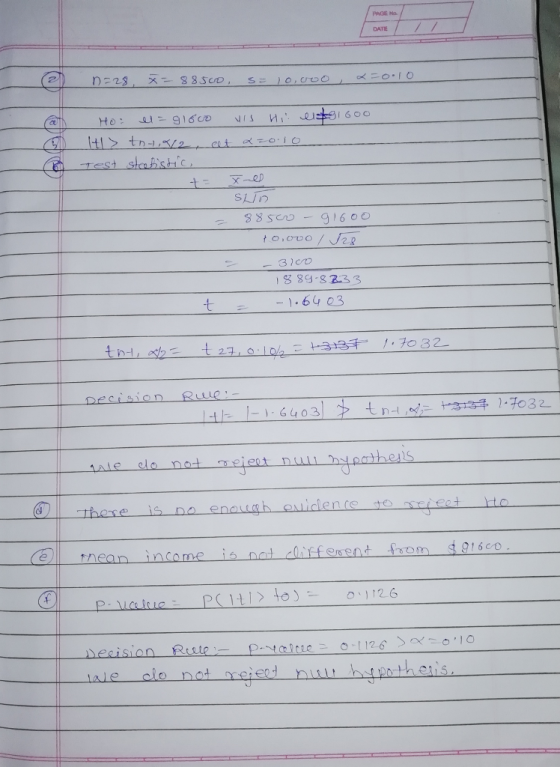 PAGE No.
DATE / /
② n=28, x̄ = 88500, s= 10,000, α=0.10
ⓐ Ho: μ = 91600 v/s H1 μ≠91600
ⓑ |t| > tn-1, α/2, at α=0.10
ⓒ Test statistic.
t = x̄-μ
s/√n
= 88500 - 91600
10,000/√28
= -3100
1889.8233
t = -1.6403
tn-1, α/2 = t 27, 0.10/2 = 1.3137 1.7032
Decision Rule:-
|t|= |-1.6403| ≯ tn-1, α = 1.3137 1.7032
We do not reject null hypothesis
ⓓ There is no enough evidence to reject Ho
ⓔ mean income is not different from $91600.
ⓕ P-value = P(|t|> to) = 0.1126
Decision Rule:- P-value = 0.1126 > α=0.10
We do not reject null hypothesis.